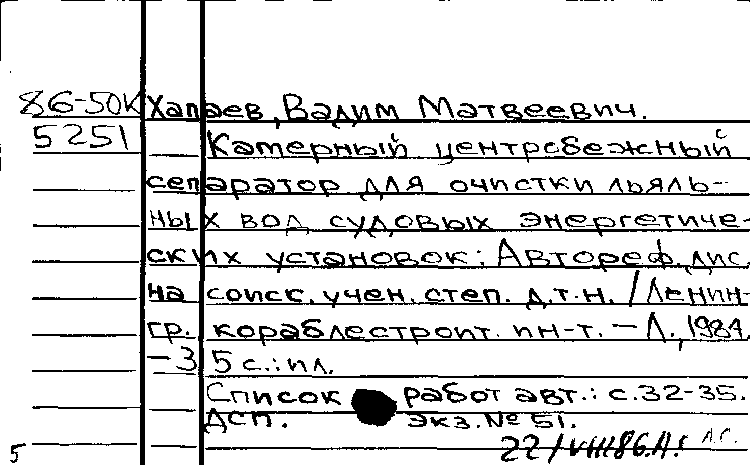 86-50К Хапаев, Вадим Матвеевич.
5251 Катерный центробежный
сепаратор для очистки льяль-
ных вод судовых энергетиче-
ских установок: Автореф. дис.
на соиск. учен. степ. д.т.н. / Ленин-
гр. кораблестроит. ин-т. – Л., 1984.
– 35 с.: ил.
Список работ авт.: с. 32-35.
ДСП. Экз. № 51.
5 22/VIII86.